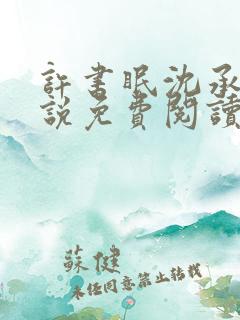 許書眠沈承
說免費閱讀
蘇健
未经同意禁止转载